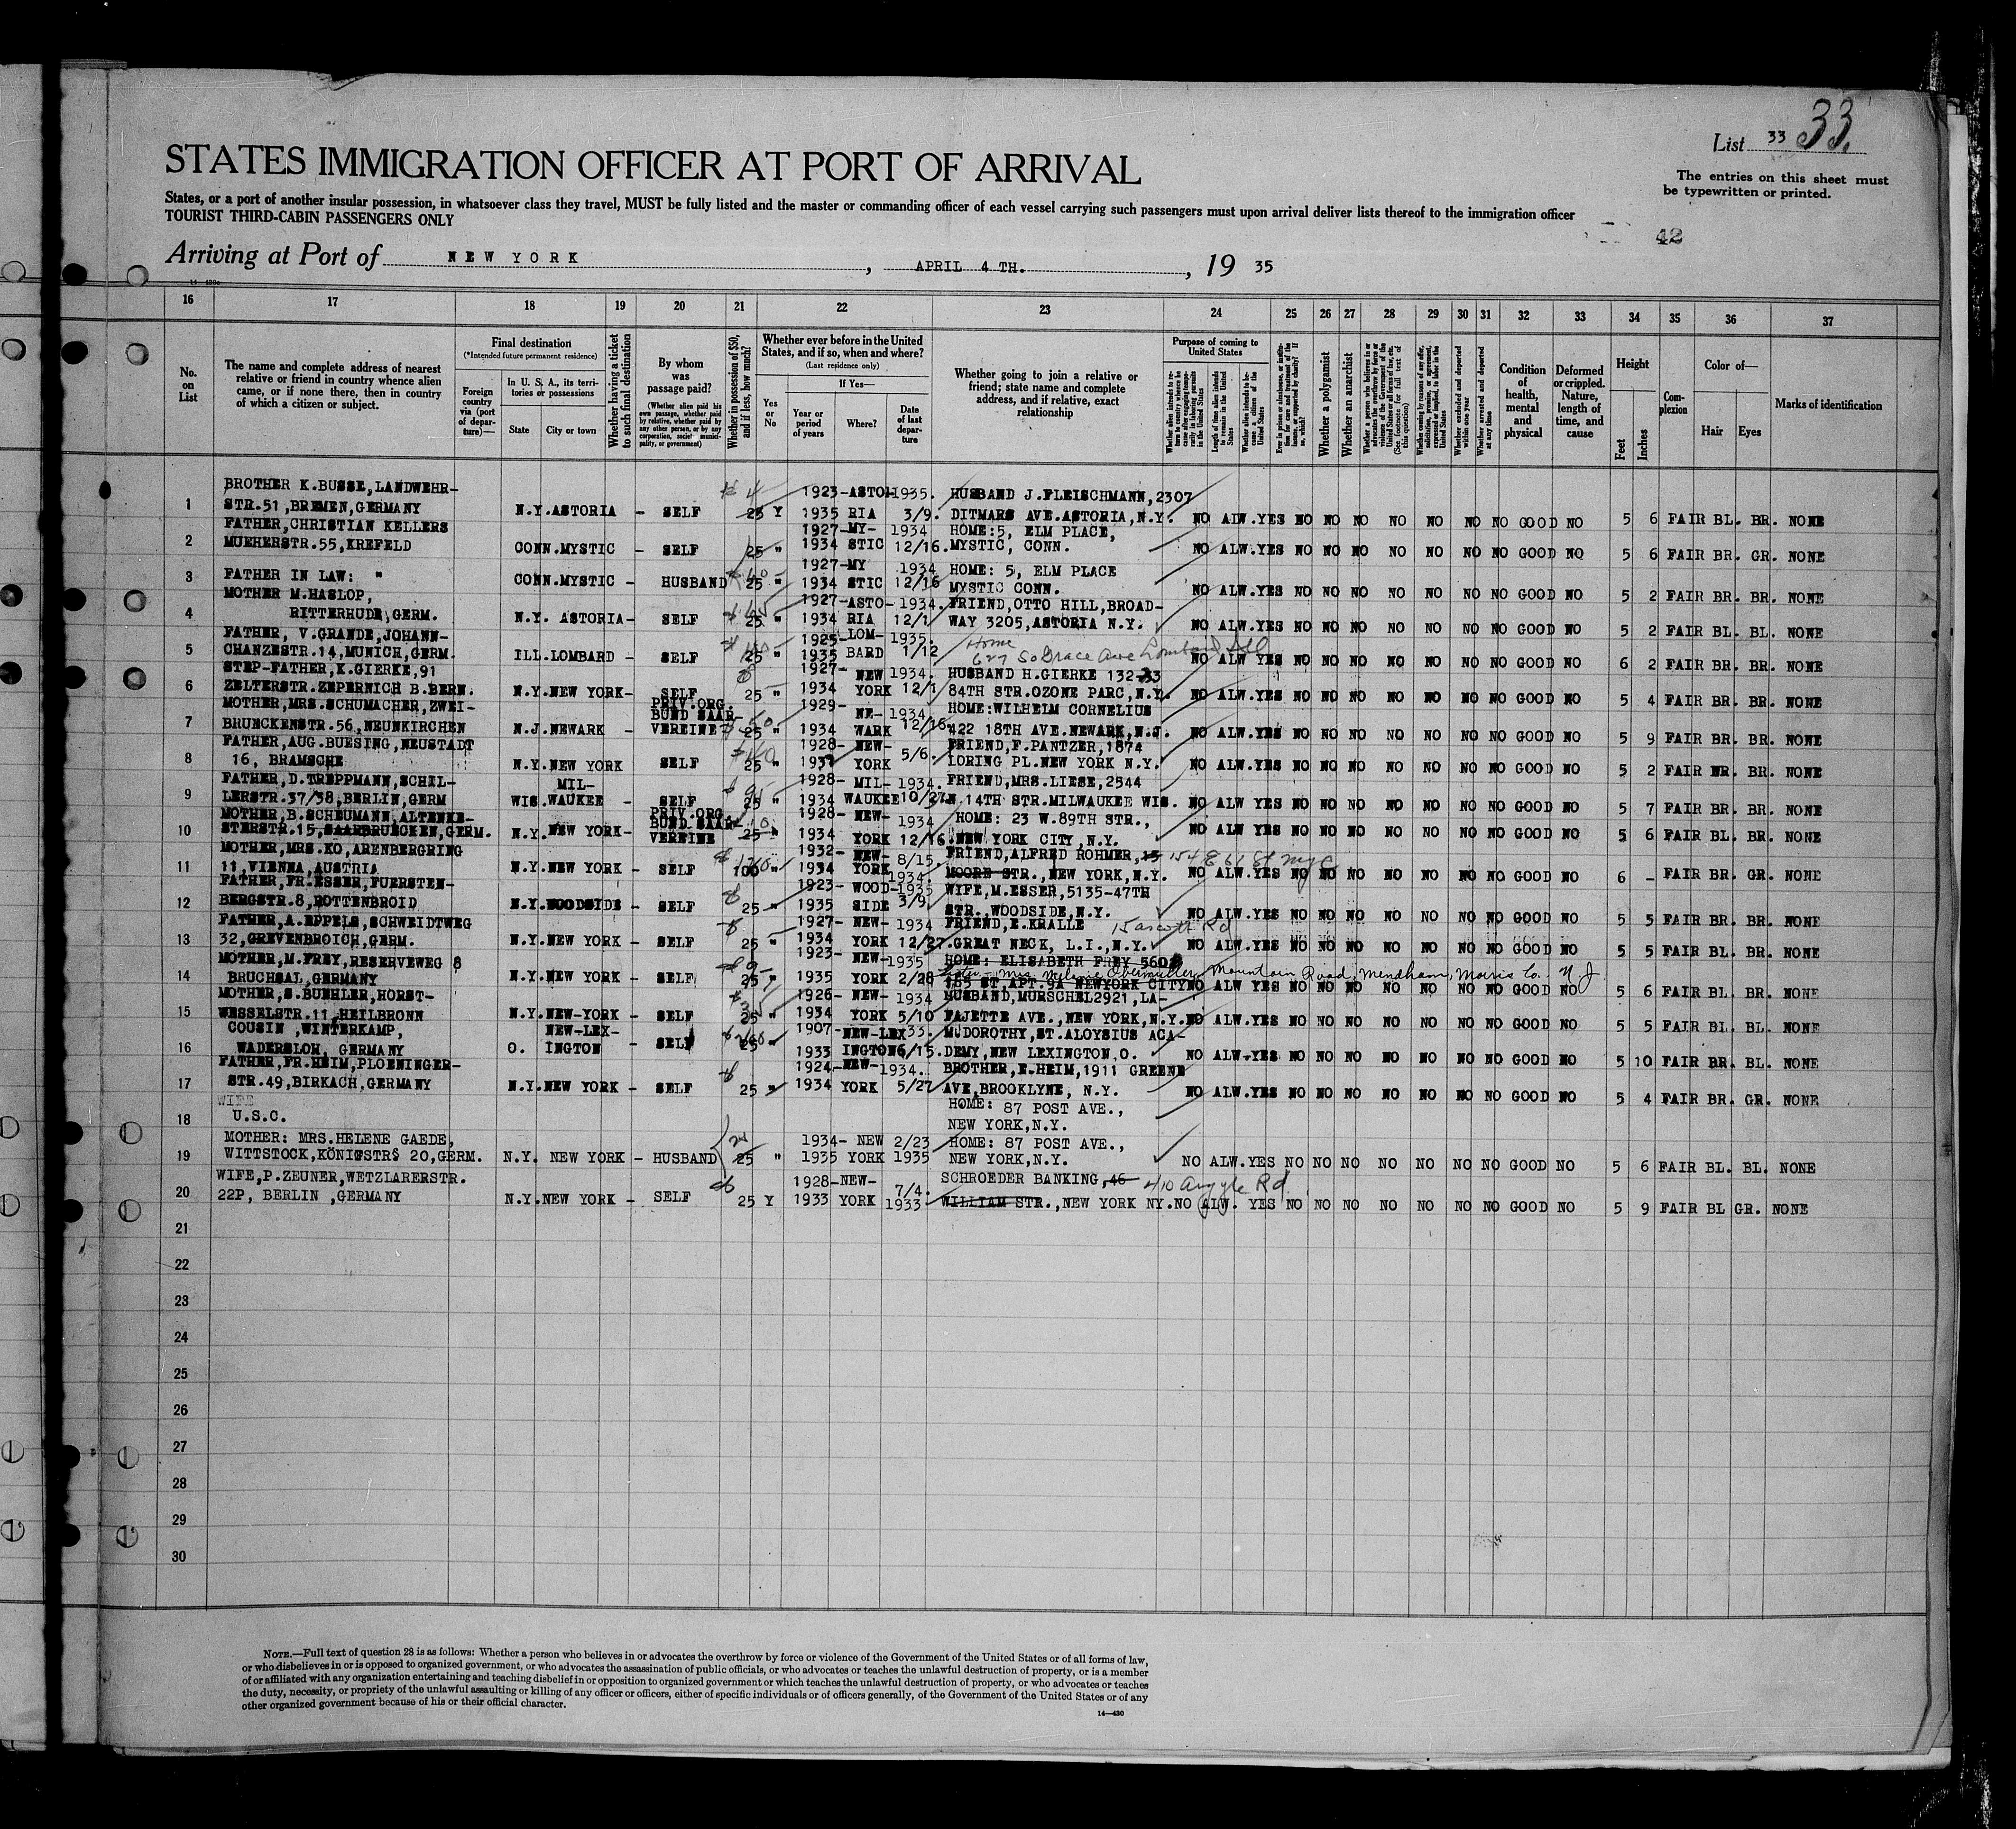 List 33 33.
STATES IMMIGRATION OFFICER AT PORT OF ARRIVAL
The entries on this sheet must
be typewritten or printed.
States, or a port of another insular possession, in whatsoever class they travel, MUST be fully listed and the master or commanding officer of each vessel carrying such passengers must upon arrival deliver lists thereof to the immigration officer
TOURIST THIRD-CABIN PASSENGERS ONLY
42
Arriving at Port of NEW YORK, APRIL 4 TH., 19 35
16 17 18 19 20 21 22 23 24 25 26 27 28 29 30 31 32 33 34 35 36 37
No. on List
The name and complete address of nearest
relative or friend in country whence alien
came, or if none there, then in country
of which a citizen or subject.
Final destination
(*Intended future permanent residence)
Foreign country via (port of departure)—
In U. S. A., its territories or possessions
State City or town
Whether having a ticket to such final destination
By whom was passage paid?
(Whether alien paid his own passage, whether paid by relative, whether paid by any other person, or by any corporation, society, municipality, or government)
Whether in possession of $50, and if less, how much?
Whether ever before in the United States, and if so, when and where?
(Last residence only)
Yes or No
If Yes—
Year or period of years
Where?
Date of last departure
Whether going to join a relative or
friend; state name and complete
address, and if relative, exact
relationship
Purpose of coming to United States
Whether a polygamist
Whether an anarchist
Condition of health, mental and physical
Deformed or crippled. Nature, length of time, and cause
Height
Feet Inches
Complexion
Color of—
Hair Eyes
Marks of identification
BROTHER K.BUSSE,LANDWEHR- 1923-ASTO- 1935. HUSBAND J.FLEISCHMANN,2307
1 STR.51,BREMEN,GERMANY N.Y.ASTORIA - SELF 25 Y 1935 RIA 3/9. DITMARS AVE.ASTORIA,N.Y. NO ALW.YES NO NO NO NO NO NO NO GOOD NO 5 6 FAIR BL. BR. NONE
FATHER,CHRISTIAN KELLERS 1927-MY- 1934 HOME:5, ELM PLACE,
2 MUEHERSTR.55,KREFELD CONN.MYSTIC - SELF 25 " 1934 STIC 12/16. MYSTIC, CONN. NO ALW.YES NO NO NO NO NO NO NO GOOD NO 5 6 FAIR BR. GR. NONE
1927-MY 1934 HOME: 5, ELM PLACE
3 FATHER IN LAW: " CONN.MYSTIC - HUSBAND 25 " 1934 STIC 12/16 MYSTIC CONN. NO ALW.YES NO NO NO NO NO NO NO GOOD NO 5 2 FAIR BR. BR. NONE
MOTHER M.HASLOP, 1927-ASTO- 1934. FRIEND,OTTO HILL,BROAD-
4 RITTERHUDE,GERM. N.Y. ASTORIA- SELF 25 " 1934 RIA 12/1 WAY 3205,ASTORIA N.Y. NO ALW.YES NO NO NO NO NO NO NO GOOD NO 5 2 FAIR BL. BL. NONE
FATHER, V.GRANDE,JOHANN- 1925-LOM- 1935. Home
5 CHANZESTR.14,MUNICH,GERM. ILL.LOMBARD - SELF 25 " 1935 BARD 1/12 627 So Grace Ave Lombard Ill NO ALW YES NO NO NO NO NO NO NO GOOD NO 6 2 FAIR BR. BR. NONE
STEP-FATHER,K.GIERKE,91 1927- NEW 1934. HUSBAND H.GIERKE 132-33
6 ZELTERSTR.ZEPERNICH B.BERN. N.Y.NEW YORK- SELF 25 " 1934 YORK 12/1 84TH STR.OZONE PARC,N.Y. NO ALW.YES NO NO NO NO NO NO NO GOOD NO 5 4 FAIR BR. BR. NONE
MOTHER,MRS.SCHUMACHER,ZWEI- PRIV.ORG. BUND SAAR- 1929- NE- 1934 HOME:WILHELM CORNELIUS
7 BRUECKENSTR.56,NEUNKIRCHEN N.J.NEWARK - VEREINE 25 " 1934 WARK 12/16. 422 18TH AVE.NEWARK,N.J. NO ALW.YES NO NO NO NO NO NO NO GOOD NO 5 9 FAIR BR. BR. NONE
FATHER,AUG.BUESING,NEUSTADT 1928- NEW- 5/6. FRIEND,F.PANTZER,1874
8 16, BRAMSCHE N.Y.NEW YORK SELF 25 " YORK LORING PL.NEW YORK N.Y. NO ALW.YES NO NO NO NO NO NO NO GOOD NO 5 2 FAIR BR. BR. NONE
FATHER,D.TREPPMANN,SCHIL- MIL- 1928- MIL- 1934. FRIEND,MRS.LIESE,2544
9 LERSTR.37/38,BERLIN,GERM WIS.WAUKEE - SELF 25 " 1934 WAUKEE 10/27. N.14TH STR.MILWAUKEE WIS. NO ALW YES NO NO NO NO NO NO NO GOOD NO 5 7 FAIR BR. BR. NONE
MOTHER,B.SCHEUMANN,ALTENKE- PRIV.ORG. BUND SAAR- 1928- NEW- 1934 HOME: 23 W.89TH STR.,
10 STERSTR.15,SAARBRUECKEN,GERM. N.Y.NEW YORK- VEREINE 25 " 1934 YORK 12/16. NEW YORK CITY,N.Y. NO ALW YES NO NO NO NO NO NO NO GOOD NO 5 6 FAIR BL. BR. NONE
MOTHER,MRS.KO,ARENBERGRING 1932- NEW- 8/15. FRIEND,ALFRED ROHMER, 154 E 61 St NYC
11 11,VIENNA,AUSTRIA N.Y.NEW YORK - SELF 100 " 1934 YORK 1934. MOORE STR.,NEW YORK,N.Y. NO ALW.YES NO NO NO NO NO NO NO GOOD NO 6 - FAIR BR. GR. NONE
FATHER,FR.ESSER,FUERSTEN- 1923- WOOD- 1935 WIFE,M.ESSER,5135-47TH
12 BERGSTR.8,ROTTENBROID N.Y.WOODSIDE - SELF 25 " 1935 SIDE 3/9. STR.,WOODSIDE,N.Y. NO ALW.YES NO NO NO NO NO NO NO GOOD NO 5 5 FAIR BR. BR. NONE
FATHER,A.EPPELS,SCHWEIDTWEG 1927- NEW- 1934 FRIEND,E.KRALLE
13 32,GREVENBROICH,GERM. N.Y.NEW YORK - SELF 25 " 1934 YORK 12/27. GREAT NECK, L.I.,N.Y. NO ALW.YES NO NO NO NO NO NO NO GOOD NO 5 5 FAIR BL. BR. NONE
MOTHER,M.FREY,RESERVEWEG 8 1923- NEW- 1935 HOME: ELISABETH FREY 560
Sister - Mrs. Melanie Obermuller, Mountain Road, Mendham, Morris Co. N J
14 BRUCHSAL,GERMANY N.Y.NEW YORK - SELF 25 " 1935 YORK 2/28 165 ST,APT.9A NEWYORK CITY NO ALW YES NO NO NO NO NO NO NO GOOD NO 5 6 FAIR BL. BR. NONE
MOTHER,S.BUEHLER,HORST- 1926- NEW- 1934 HUSBAND,MURSCHEL2921,LA-
15 WESSELSTR.11,HEILBRONN N.Y.NEW-YORK - SELF 25 " 1934 YORK 5/10 FAJETTE AVE.,NEW YORK,N.Y. NO ALW.YES NO NO NO NO NO NO NO GOOD NO 5 5 FAIR BL. BL. NONE
COUSIN ,WINTERKAMP, NEW-LEX- 1907- NEW-LEX 33. M.DOROTHY,ST.ALOYSIUS ACA-
16 WADERSLOH, GERMANY O. INGTON - SELF 25 " 1933 INGTON 6/15. DEMY,NEW LEXINGTON,O. NO ALW-YES NO NO NO NO NO NO NO GOOD NO 5 10 FAIR BR. BL. NONE
FATHER,FR.HEIM,PLOENINGER- 1924- NEW- 1934. BROTHER,E.HEIM,1911 GREENE
17 STR.49,BIRKACH,GERMANY N.Y.NEW YORK - SELF 25 " 1934 YORK 5/27 AVE,BROOKLYNE, N.Y. NO ALW.YES NO NO NO NO NO NO NO GOOD NO 5 4 FAIR BR. GR. NONE
WIFE HOME: 87 POST AVE.,
18 U.S.C. NEW YORK,N.Y.
MOTHER: MRS.HELENE GAEDE, 1934- NEW 2/23 HOME: 87 POST AVE.,
19 WITTSTOCK,KÖNIGSTRS 20,GERM. N.Y. NEW YORK - HUSBAND 25 " 1935 YORK 1935 NEW YORK,N.Y. NO ALW.YES NO NO NO NO NO NO NO GOOD NO 5 6 FAIR BL. BL. NONE
WIFE,P.ZEUNER,WETZLARERSTR. 1928-NEW- 7/4. SCHROEDER BANKING,46 410 Argyle Rd.
20 22P, BERLIN ,GERMANY N.Y.NEW YORK - SELF 25 Y 1933 YORK 1933 WILLIAM STR.,NEW YORK NY. NO ALW. YES NO NO NO NO NO NO NO GOOD NO 5 9 FAIR BL GR. NONE
21
22
23
24
25
26
27
28
29
30
NOTE.—Full text of question 28 is as follows: Whether a person who believes in or advocates the overthrow by force or violence of the Government of the United States or of all forms of law,
or who disbelieves in or is opposed to organized government, or who advocates the assassination of public officials, or who advocates or teaches the unlawful destruction of property, or is a member
of or affiliated with any organization entertaining and teaching disbelief in or opposition to organized government or which teaches the unlawful destruction of property, or who advocates or teaches
the duty, necessity, or propriety of the unlawful assaulting or killing of any officer or officers, either of specific individuals or of officers generally, of the Government of the United States or of any
other organized government because of his or their official character.
14—430